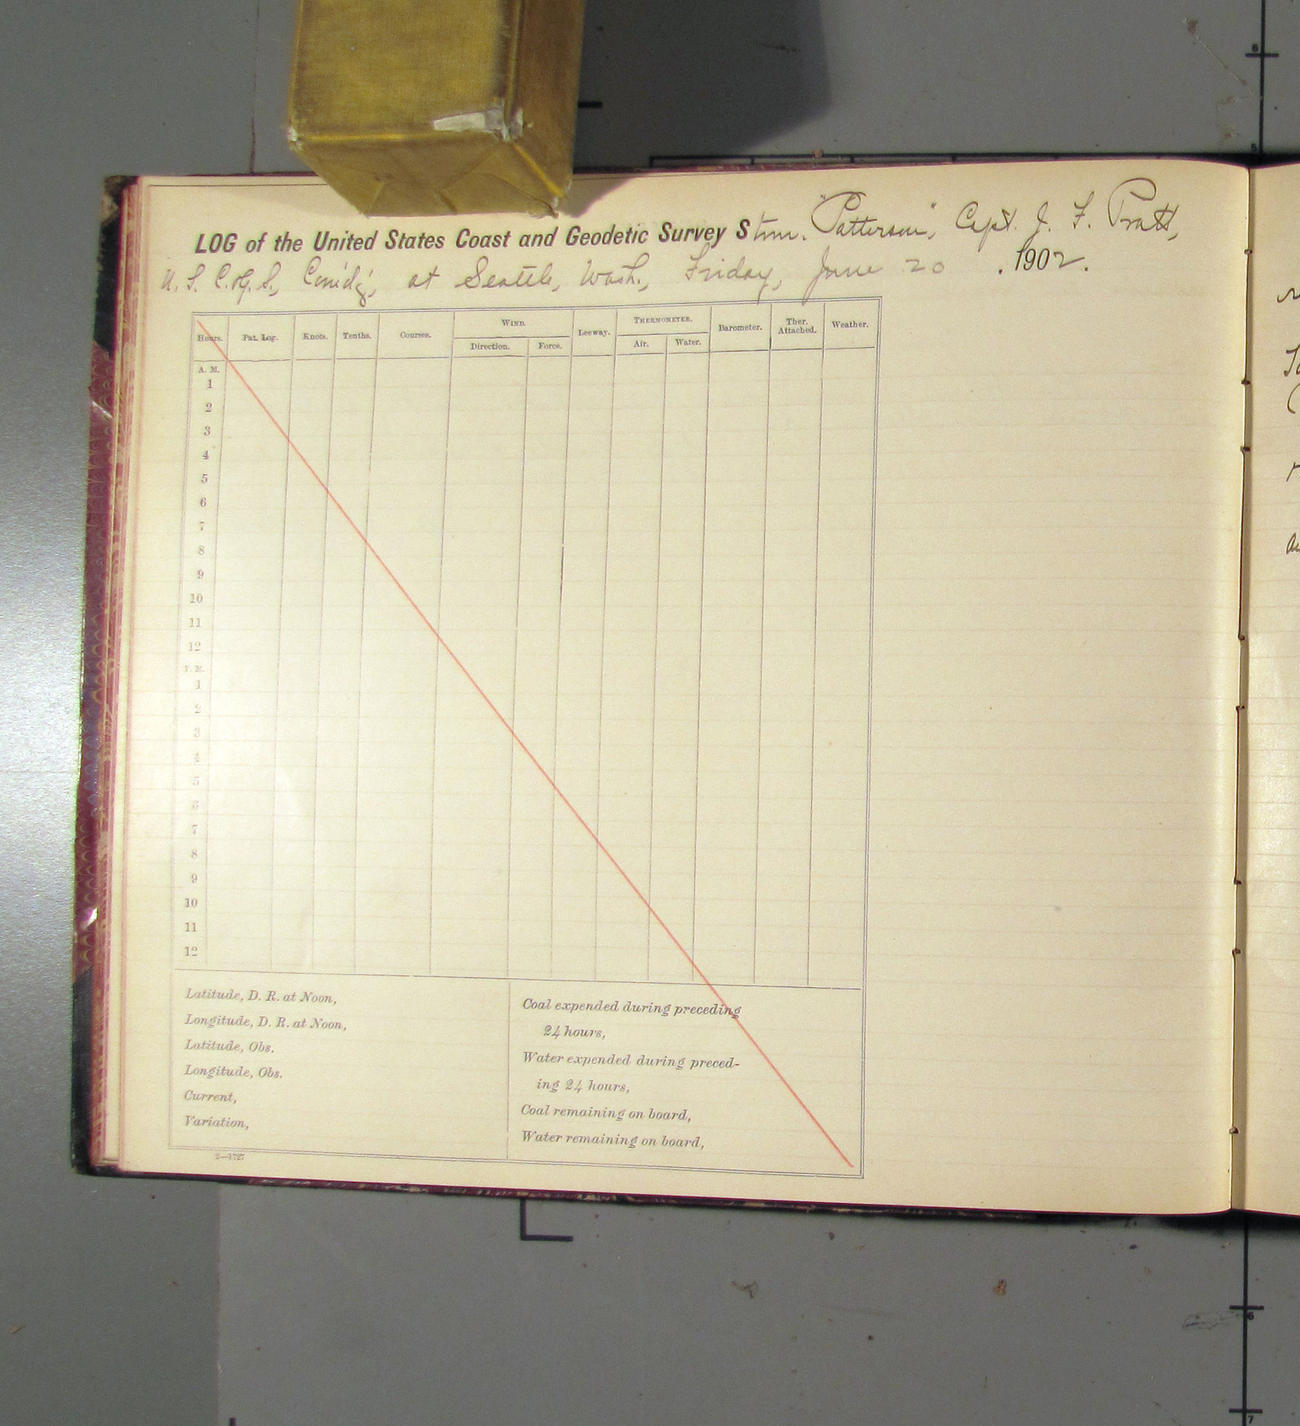 LOG of the United States Coast and Geodetic Survey Stmr. "Patterson", Capt. J. F. Pratt,
U. S. C. & G. S., Com'd'g, at Seattle, Wash., Friday, June 20, 1902.
Hours. Pat. Log. Knots. Tenths. Courses. WIND. Leeway. THERMOMETER. Barometer. Ther. Attached. Weather.
Direction. Force. Air. Water.
A. M.
1
2
3
4
5
6
7
8
9
10
11
12
P. M.
1
2
3
4
5
6
7
8
9
10
11
12
Latitude, D. R. at Noon,
Longitude, D. R. at Noon,
Latitude, Obs.
Longitude, Obs.
Current,
Variation,
Coal expended during preceding
24 hours,
Water expended during preced-
ing 24 hours,
Coal remaining on board,
Water remaining on board,
2—1727
6
5
6
7